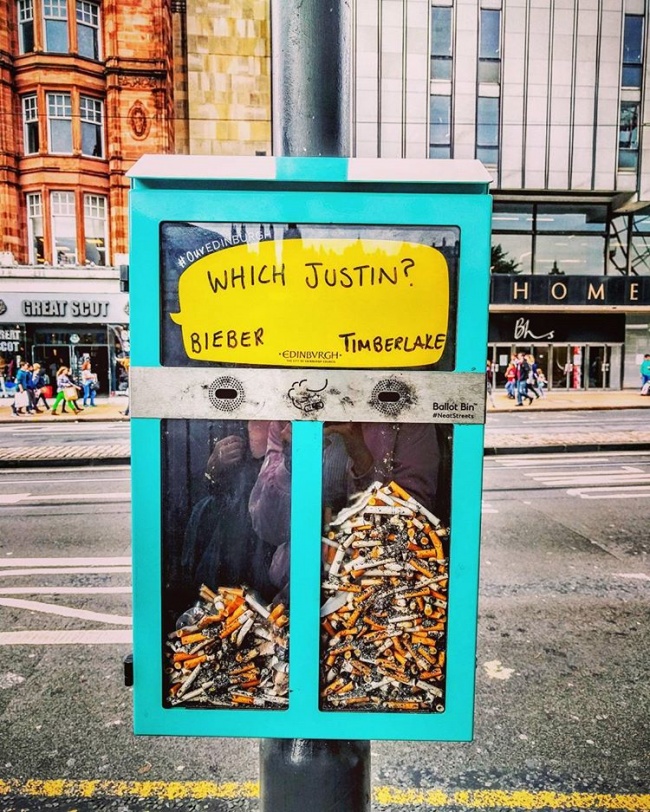 #OUREDINBURGH
WHICH JUSTIN?
BIEBER TIMBERLAKE
·EDINBVRGH·
THE CITY OF EDINBURGH COUNCIL
Ballot Bin™
#NeatStreets
GREAT SCOT
HOME
Bhs